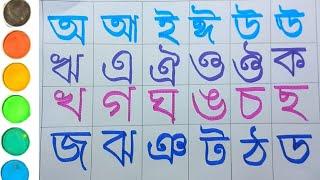 অ আ ই ঈ উ ঊ
ঋ এ ঐ ও ঔ ক
খ গ ঘ ঙ চ ছ
জ ঝ ঞ ট ঠ ড